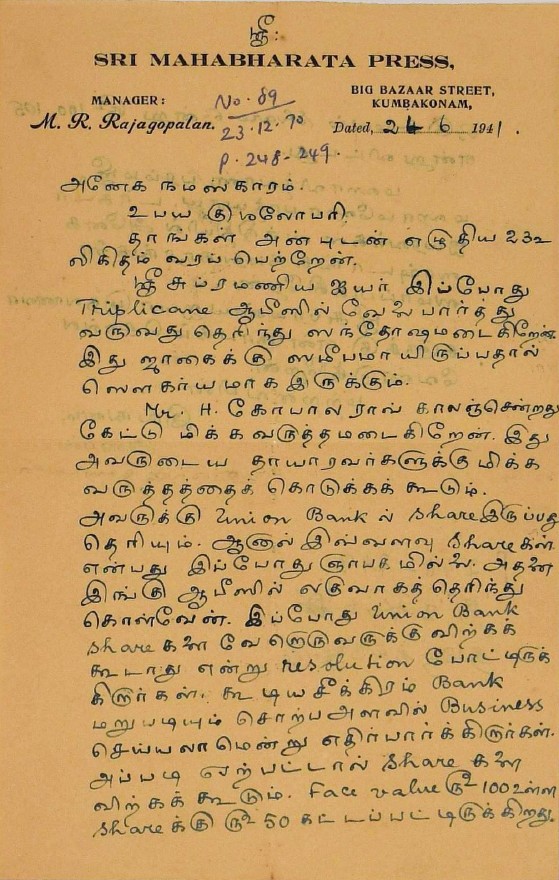 ஸ்ரீ:
SRI MAHABHARATA PRESS,
MANAGER:
M. R. Rajagopalan.
No. 89
23.12.70
p. 248-249.
BIG BAZAAR STREET,
KUMBAKONAM,
Dated, 24 6 1941.
அனேக நமஸ்காரம்.
உபய குசலோபரி.
தாங்கள் அன்புடன் எழுதிய 23உ
லிகிதம் வரப் பெற்றேன்.
ஸ்ரீ சுப்ரமணிய ஐயர் இப்போது
Triplicane ஆபீஸில் வேலை பார்த்து
வருவது தெரிந்து ஸந்தோஷமடைகிறேன்.
இது ஜாகைக்கு ஸமீபமாயிருப்பதால்
ஸௌகர்யமாக இருக்கும்.
Mr. H. கோபால ராவ் காலஞ்சென்றது
கேட்டு மிக்க வருத்தமடைகிறேன். இது
அவருடைய தாயாரவர்களுக்கு மிக்க
வருத்தத்தைக் கொடுக்கக் கூடும்.
அவருக்கு Union Bank ல் share இருப்பது
தெரியும். ஆனால் இவ்வளவு shareகள்
என்பது இப்போது ஞாபகமில்லை. அதனை
இங்கு ஆபீஸில் லகுவாகத் தெரிந்து
கொள்வேன். இப்போது Union Bank
shareகளை வேறொருவருக்கு விற்கக்
கூடாது என்று resolution போட்டிருக்
கிறார்கள். கூடிய சீக்கிரம் Bank
மறுபடியும் சொற்ப அளவில் Business
செய்யலாமென்று எதிர்பார்க்கிறார்கள்.
அப்படி ஏற்பட்டால் shareகளை
விற்கக் கூடும். Face value ரூ 100 உள்ள
shareக்கு ரூ 50 கட்டப்பட்டிருக்கிறது.